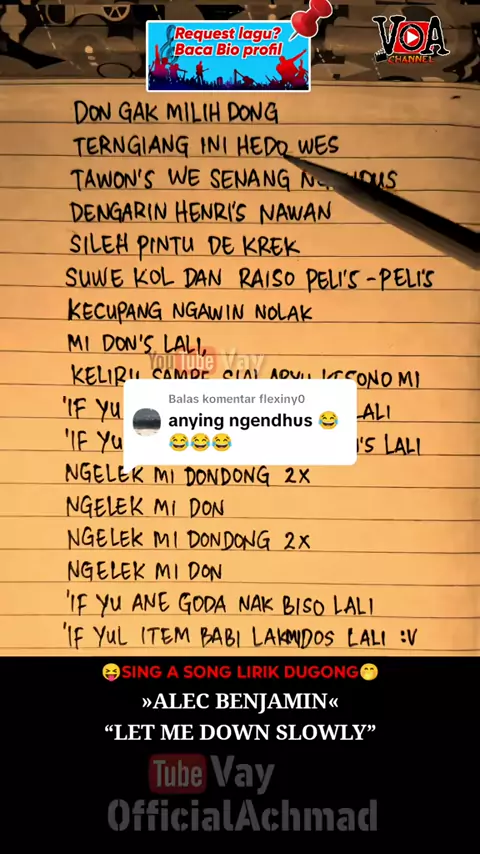 Request lagu?
Baca Bio profil
VOA
CHANNEL
DON GAK MILIH DONG
TERNGIANG INI HEDO WES
TAWON'S WE SENANG
DENGARIN HENRI'S NAWAN
SILEH PINTU DE KREK
SUWE KOL DAN RAISO PELI'S - PELI'S
KECUPANG NGAWIN NOLAK
MI DON'S LALI,
YouTube Vay
KELIRU SAMPE
Balas komentar flexiny0
'IF YU LALI
anying ngendhus 😂
'IF YU LALI
😂😂😂
NGELEK MI DONDONG 2X
NGELEK MI DON
NGELEK MI DONDONG 2X
NGELEK MI DON
'IF YU ANE GODA NAK BISO LALI
'IF YUL ITEM BABI LALI :V
😝SING A SONG LIRIK DUGONG🤭
»ALEC BENJAMIN«
“LET ME DOWN SLOWLY”
Tube Vay
OfficialAchmad